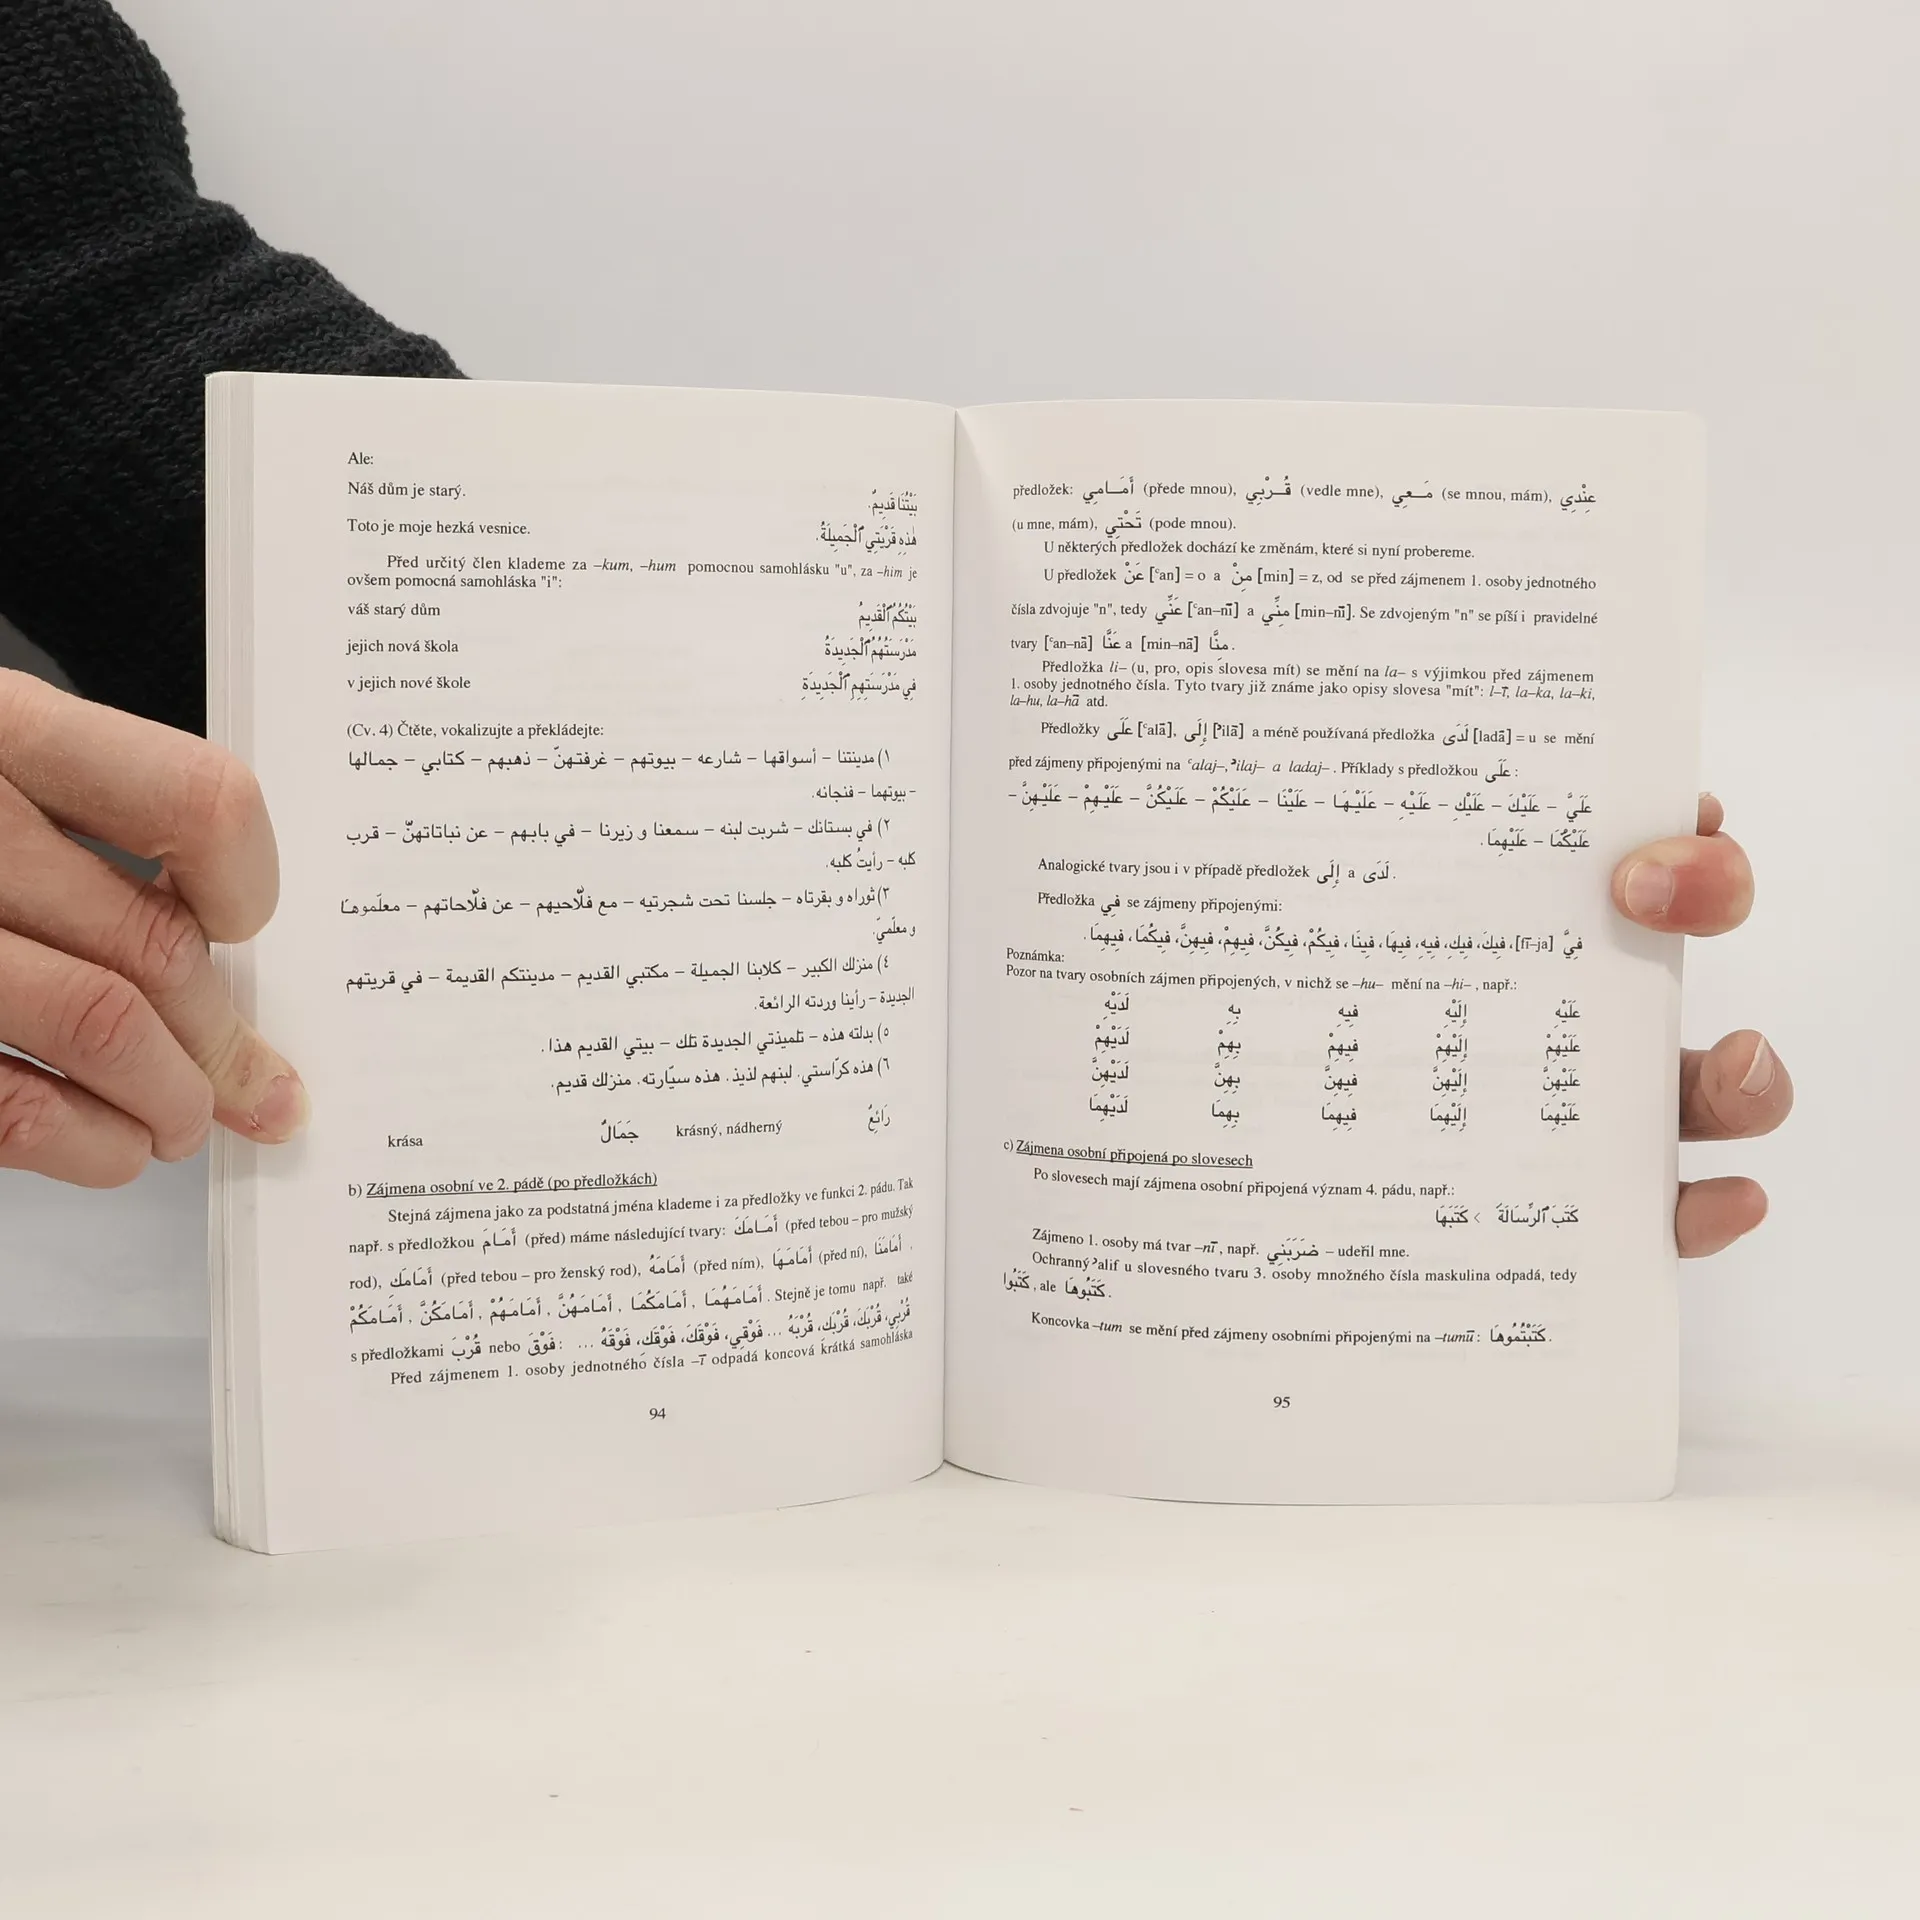 Ale:
Náš dům je starý. بَيْتُنَا قَدِيمٌ.
Toto je moje hezká vesnice. هٰذِهِ قَرْيَتِي ٱلْجَمِيلَةُ.
Před určitý člen klademe za –kum, –hum pomocnou samohlásku "u", za –him je
ovšem pomocná samohláska "i":
váš starý dům بَيْتُكُمُ ٱلْقَدِيمُ
jejich nová škola مَدْرَسَتُهُمُ ٱلْجَدِيدَةُ
v jejich nové škole فِي مَدْرَسَتِهِمِ ٱلْجَدِيدَةِ
(Cv. 4) Čtěte, vokalizujte a překládejte:
١) مدينتنا – أسواقها – شارعه – بيوتهم – غرفتهنّ – ذهبهم – كتابي – جمالها
- بيوتهما – فنجانه.
٢) في بستانك – شربت لبنه – سمعنا و زيرنا – في بابهم – عن نباتاتهنّ – قرب
كلبه – رأيتُ كلبه.
٣) ثوراه و بقرتاه – جلسنا تحت شجرتيه – مع فلّاحيهم – عن فلّاحاتهم – معلّموها
و معلّميّ.
٤) منزلك الكبير – كلابنا الجميلة – مكتبي القديم – مدينتكم القديمة – في قريتهم
الجديدة – رأينا وردته الرائعة.
٥) بدلته هذه – تلميذتي الجديدة تلك – بيتي القديم هذا.
٦) هذه كرّاستي. لبنهم لذيذ. هذه سيّارته. منزلك قديم.
krása جَمَالٌ krásný, nádherný رَائِعٌ
b) Zájmena osobní ve 2. pádě (po předložkách)
Stejná zájmena jako za podstatná jména klademe i za předložky ve funkci 2. pádu. Tak
např. s předložkou أَمَامَ (před) máme následující tvary: أَمَامَكَ (před tebou – pro mužský
rod), أَمَامَكِ (před tebou – pro ženský rod), أَمَامَهُ (před ním), أَمَامَهَا (před ní), أَمَامَنَا ,
أَمَامَكُمْ , أَمَامَكُنَّ , أَمَامَهُمْ , أَمَامَهُنَّ , أَمَامَكُمَا , أَمَامَهُمَا . Stejně je tomu např. také
s předložkami قُرْبَ nebo فَوْقَ : قُرْبِي، قُرْبَكَ، قُرْبَكِ، قُرْبَهُ ... فَوْقِي، فَوْقَكَ، فَوْقَكِ، فَوْقَهُ ...
Před zájmenem 1. osoby jednotného čísla –ī odpadá koncová krátká samohláska
94
předložek: أَمَامِي (přede mnou), قُرْبِي (vedle mne), مَعِي (se mnou, mám), عِنْدِي
(u mne, mám), تَحْتِي (pode mnou).
U některých předložek dochází ke změnám, které si nyní probereme.
U předložek عَنْ [ʿan] = o a مِنْ [min] = z, od se před zájmenem 1. osoby jednotného
čísla zdvojuje "n", tedy عَنِّي [ʿan–nī] a مِنِّي [min–nī]. Se zdvojeným "n" se píší i pravidelné
tvary [ʿan–nā] عَنَّا a [min–nā] مِنَّا .
Předložka li– (u, pro, opis slovesa mít) se mění na la– s výjimkou před zájmenem
1. osoby jednotného čísla. Tyto tvary již známe jako opisy slovesa "mít": l–ī, la–ka, la–ki,
la–hu, la–hā atd.
Předložky عَلَى [ʿalā], إِلَى [ʾilā] a méně používaná předložka لَدَى [ladā] = u se mění
před zájmeny připojenými na ʿalaj–, ʾilaj– a ladaj– . Příklady s předložkou عَلَى :
عَلَيَّ – عَلَيْكَ – عَلَيْكِ – عَلَيْهِ – عَلَيْهَا – عَلَيْنَا – عَلَيْكُمْ – عَلَيْكُنَّ – عَلَيْهِمْ – عَلَيْهِنَّ –
عَلَيْكُمَا – عَلَيْهِمَا .
Analogické tvary jsou i v případě předložek إِلَى a لَدَى .
Předložka فِي se zájmeny připojenými:
فِيَّ [fī–ja]، فِيكَ، فِيكِ، فِيهِ، فِيهَا، فِينَا، فِيكُمْ، فِيكُنَّ، فِيهِمْ، فِيهِنَّ، فِيكُمَا، فِيهِمَا .
Poznámka:
Pozor na tvary osobních zájmen připojených, v nichž se –hu– mění na –hi– , např.:
عَلَيْهِ إِلَيْهِ فِيهِ بِهِ لَدَيْهِ
عَلَيْهِمْ إِلَيْهِمْ فِيهِمْ بِهِمْ لَدَيْهِمْ
عَلَيْهِنَّ إِلَيْهِنَّ فِيهِنَّ بِهِنَّ لَدَيْهِنَّ
عَلَيْهِمَا إِلَيْهِمَا فِيهِمَا بِهِمَا لَدَيْهِمَا
c) Zájmena osobní připojená po slovesech
Po slovesech mají zájmena osobní připojená význam 4. pádu, např.:
كَتَبَ ٱلرِّسَالَةَ > كَتَبَهَا
Zájmeno 1. osoby má tvar –nī , např. ضَرَبَنِي – udeřil mne.
Ochranný ʾalif u slovesného tvaru 3. osoby množného čísla maskulina odpadá, tedy
كَتَبُوا , ale كَتَبُوهَا .
Koncovka –tum se mění před zájmeny osobními připojenými na –tumū : كَتَبْتُمُوهَا .
95